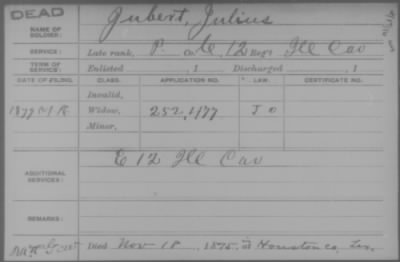 DEAD
NAME OF SOLDIER: Jubert, Julius
SERVICE: Late rank, P. Co. 12 Reg't Ill Cav
TERM OF SERVICE: Enlisted , 1 Discharged , 1
DATE OF FILING. CLASS. APPLICATION NO. LAW. CERTIFICATE NO.
Invalid,
Widow, 252,177
Minor,
ADDITIONAL SERVICES: E 12 Ill Cav
REMARKS:
Died Nov 18, 1875, at Houston Co., Tex.